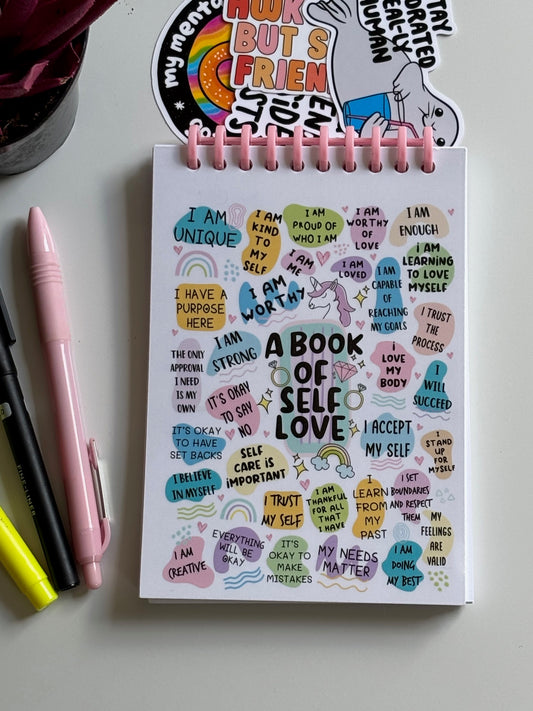 my mental
BUT S
FRIEN
STAY
HYDRATED
REAL-LY
HUMAN
I AM
UNIQUE
I AM
KIND
TO MY
SELF
I AM
PROUD OF
WHO I AM
I AM
WORTHY
OF
LOVE
I AM
ENOUGH
I AM
ME
I AM
LOVED
I AM
CAPABLE
OF
REACHING
MY GOALS
i AM
LEARNING
TO LOVE
MYSELF
I HAVE A
PURPOSE
HERE
I AM
WORTHY
I TRUST
THE
PROCESS
THE ONLY
APPROVAL
I NEED
IS MY
OWN
I AM
STRONG
A BOOK
OF
SELF
LOVE
i
LOVE
MY
BODY
I
WILL
SUCCEED
IT'S OKAY
TO SAY
NO
IT'S OKAY
TO HAVE
SET BACKS
SELF
CARE IS
iMPORTANT
I ACCEPT
MY SELF
I
STAND
UP
FOR
MYSELF
I BELIEVE
IN MYSELF
I TRUST
MY SELF
I AM
THANKFUL
FOR ALL
THAT
I HAVE
I
LEARN
FROM
MY
PAST
I SET
BOUNDARIES
AND RESPECT
THEM
MY
FEELINGS
ARE
VALID
I AM
CREATIVE
EVERYTHING
WILL BE
OKAY
IT'S
OKAY TO
MAKE
MISTAKES
MY NEEDS
MATTER
I AM
DOING
MY BEST
FINE-LINER